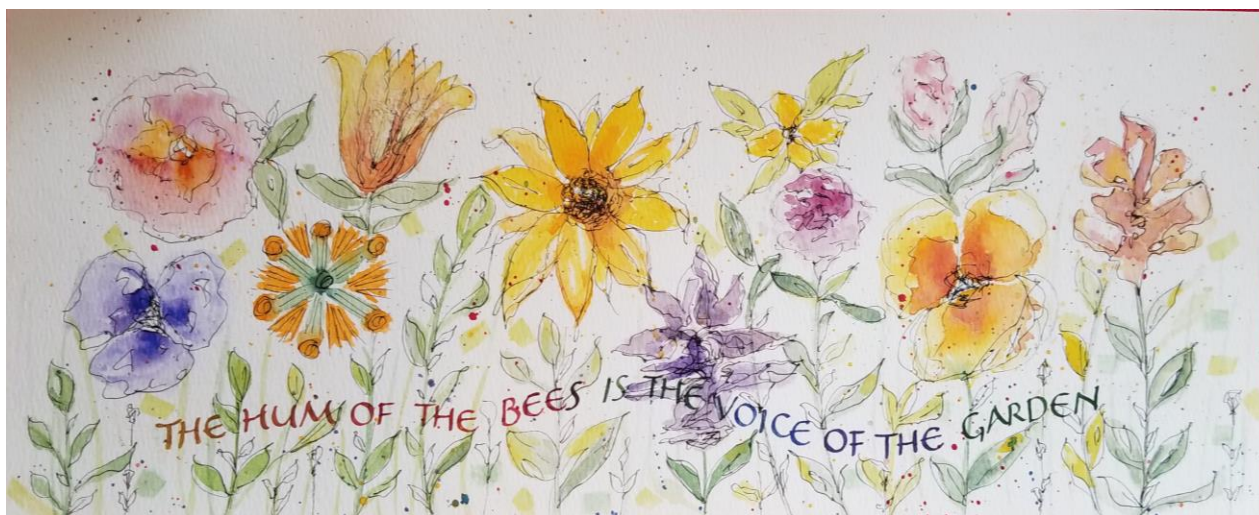 THE HUM OF THE BEES IS THE VOICE OF THE GARDEN